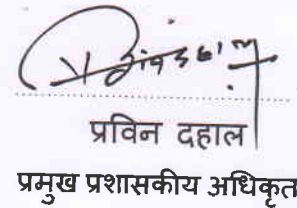 प्रविन दहाल
प्रमुख प्रशासकीय अधिकृत